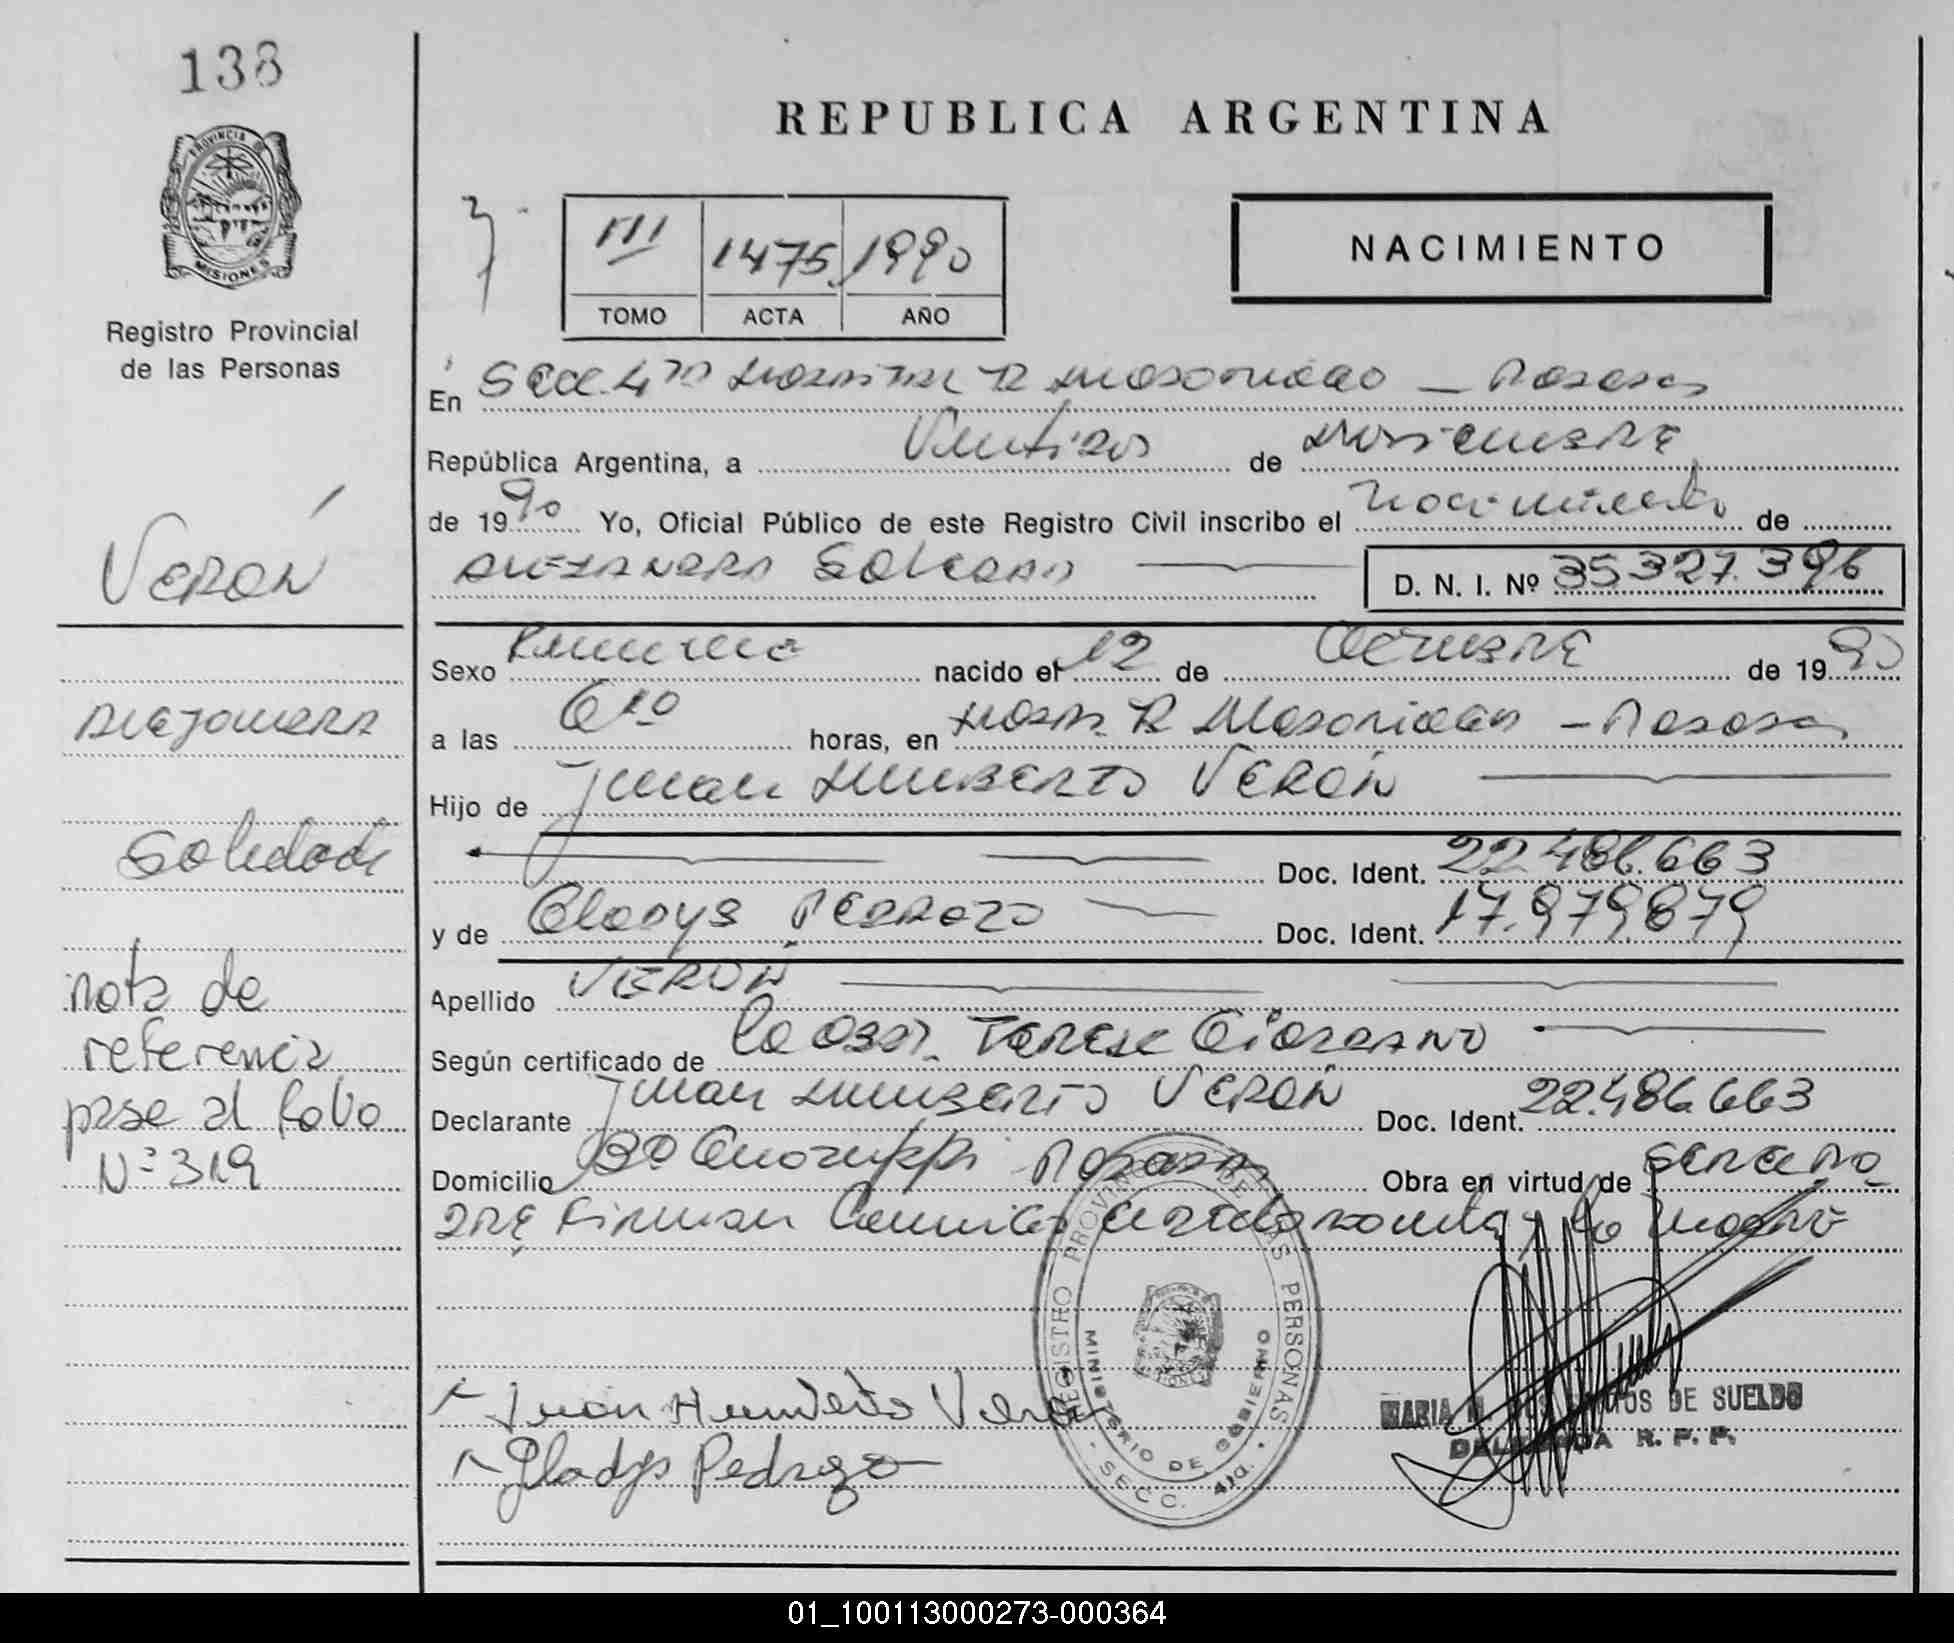 138
PROVINCIA DE
MISIONES
Registro Provincial
de las Personas
VERÓN
Alejandra
Soledad
nota de
referencia
pase al folio
Nº 319
REPUBLICA ARGENTINA
III 1475 1990
TOMO ACTA AÑO
NACIMIENTO
En Secc. 4ta Hospital R Madariaga - Posadas
República Argentina, a Veintidos de Noviembre
de 1990 Yo, Oficial Público de este Registro Civil inscribo el nacimiento de
Alejandra Soledad D. N. I. Nº 35.327.396
Sexo Femenino nacido el 12 de Octubre de 1990
a las 6 10 horas, en Hosp. R Madariaga - Posadas
Hijo de Juan Humberto VERÓN
Doc. Ident. 22.486.663
y de Gladys Pedrozo Doc. Ident. 17.979.879
Apellido VERÓN
Según certificado de la Obst. Terese Giordano
Declarante Juan Humberto VERÓN Doc. Ident. 22.486.663
Domicilio Bº Posadas Obra en virtud de ser el pa
dre Firman el declarante y la madre
Juan Humberto Veron
Gladys Pedrozo
REGISTRO PROVINCIAL DE LAS PERSONAS
MINISTERIO DE GOBIERNO
- SECC. 4ta. -
MARIA DE SUELDO
DELEGADA R. P. P.
01_100113000273-000364